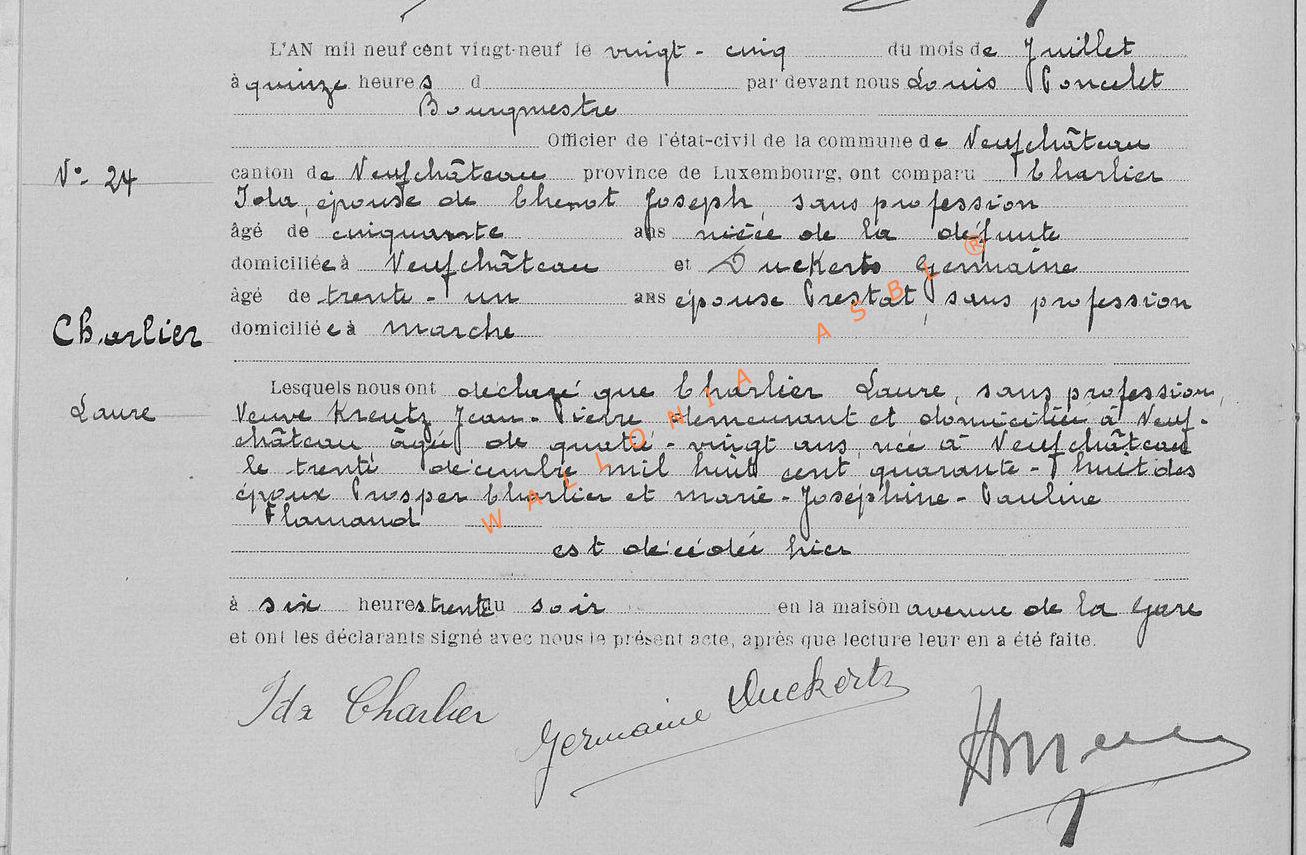 L'AN mil neuf cent vingt-neuf le vingt - cinq du mois de Juillet
à quinze heures d par devant nous Louis Poncelet
Bourgmestre
Officier de l'état-civil de la commune de Neufchâteau
N° 24
canton de Neufchâteau province de Luxembourg, ont comparu Charlier
Ida, épouse de Chenot Joseph, sans profession
âgé de cinquante ans nièce de la défunte
domiciliée à Neufchâteau et Duckerts Germaine
âgé de trente - un ans épouse Prestat, sans profession
Charlier
domiciliée à marche
Lesquels nous ont déclaré que Charlier Laure, sans profession,
Laure
Veuve Kreutz Jean - Pierre demeurant et domiciliée à Neuf-
château âgée de quatre - vingt ans, née à Neufchâteau
le trente décembre mil huit cent quarante - huit des
époux Prosper Charlier et marie - Joséphine - Pauline
Flamand
est décédée hier
à six heures trente du soir en la maison avenue de la Gare
et ont les déclarants signé avec nous le présent acte, après que lecture leur en a été faite.
Ida Charlier
Germaine Duckerts
WALLONIA ASBL ®